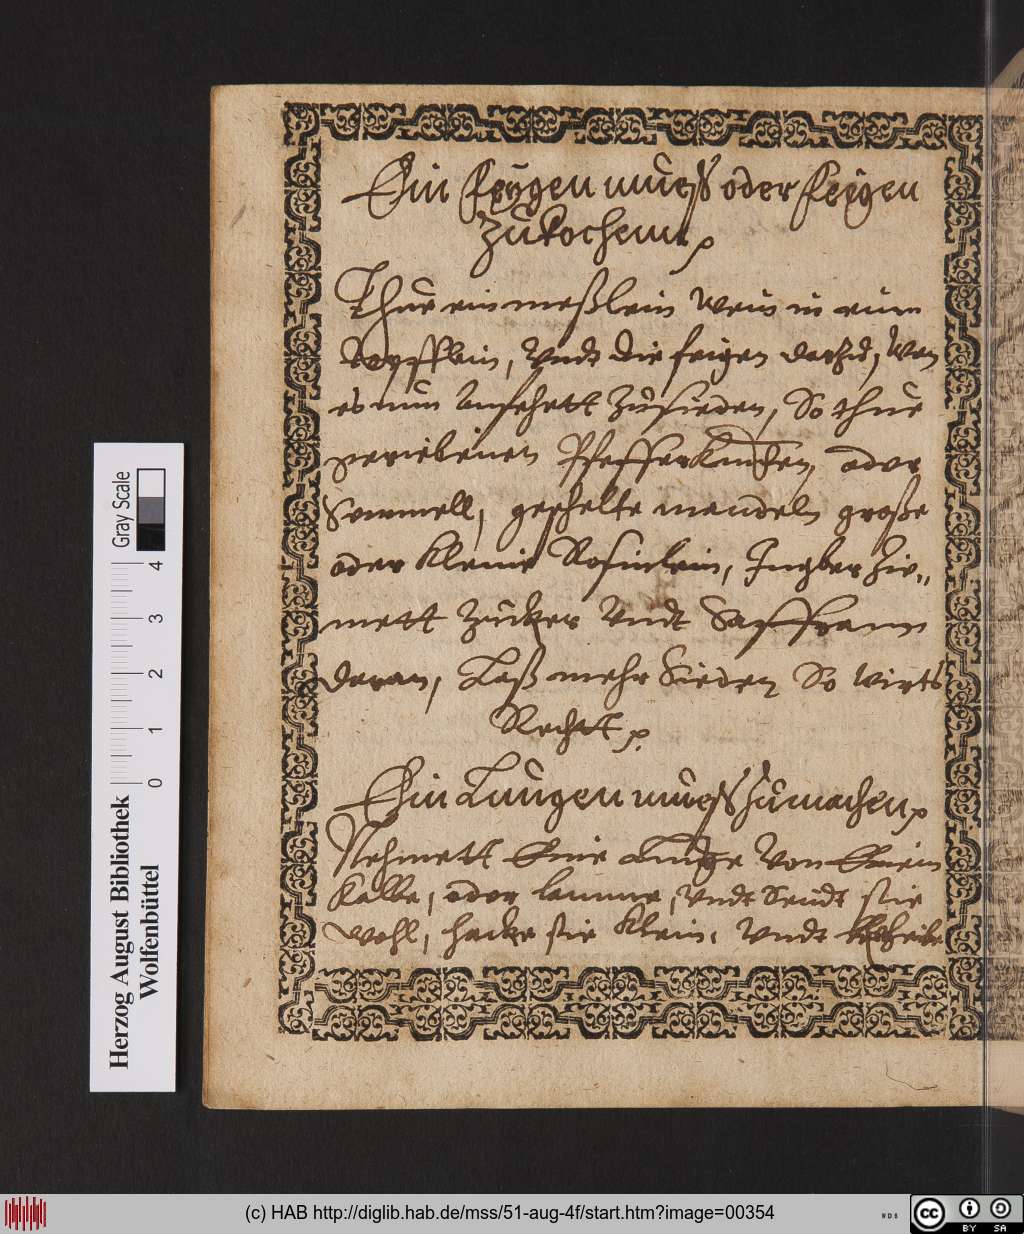 Ein feygen mueß oder feigen
Zukochenn
Thue ein meßlein Wein in ein
topfflein, Undt die feigen darzu, Wen
es nun anfehett Zusieden, So thue
geriebenen Pfefferkuchen, oder
Semmell, geschelte mandeln große
oder kleine Rosinlein, Ingber Zie„
mett Zucker Undt Saffrann
daran, Laß mehr Sieden So wirts
Rechtt
Ein Lungen mueß Zumachen
Nehmett Eine Lunge Von Einem
Kalbe, oder lamme, Undt Seudt sie
wohl, hacke sie klein, Undt
Herzog August Bibliothek
Wolfenbüttel
0 1 2 3 4
Gray Scale
(c) HAB http://diglib.hab.de/mss/51-aug-4f/start.htm?image=00354
WDB
cc BY SA